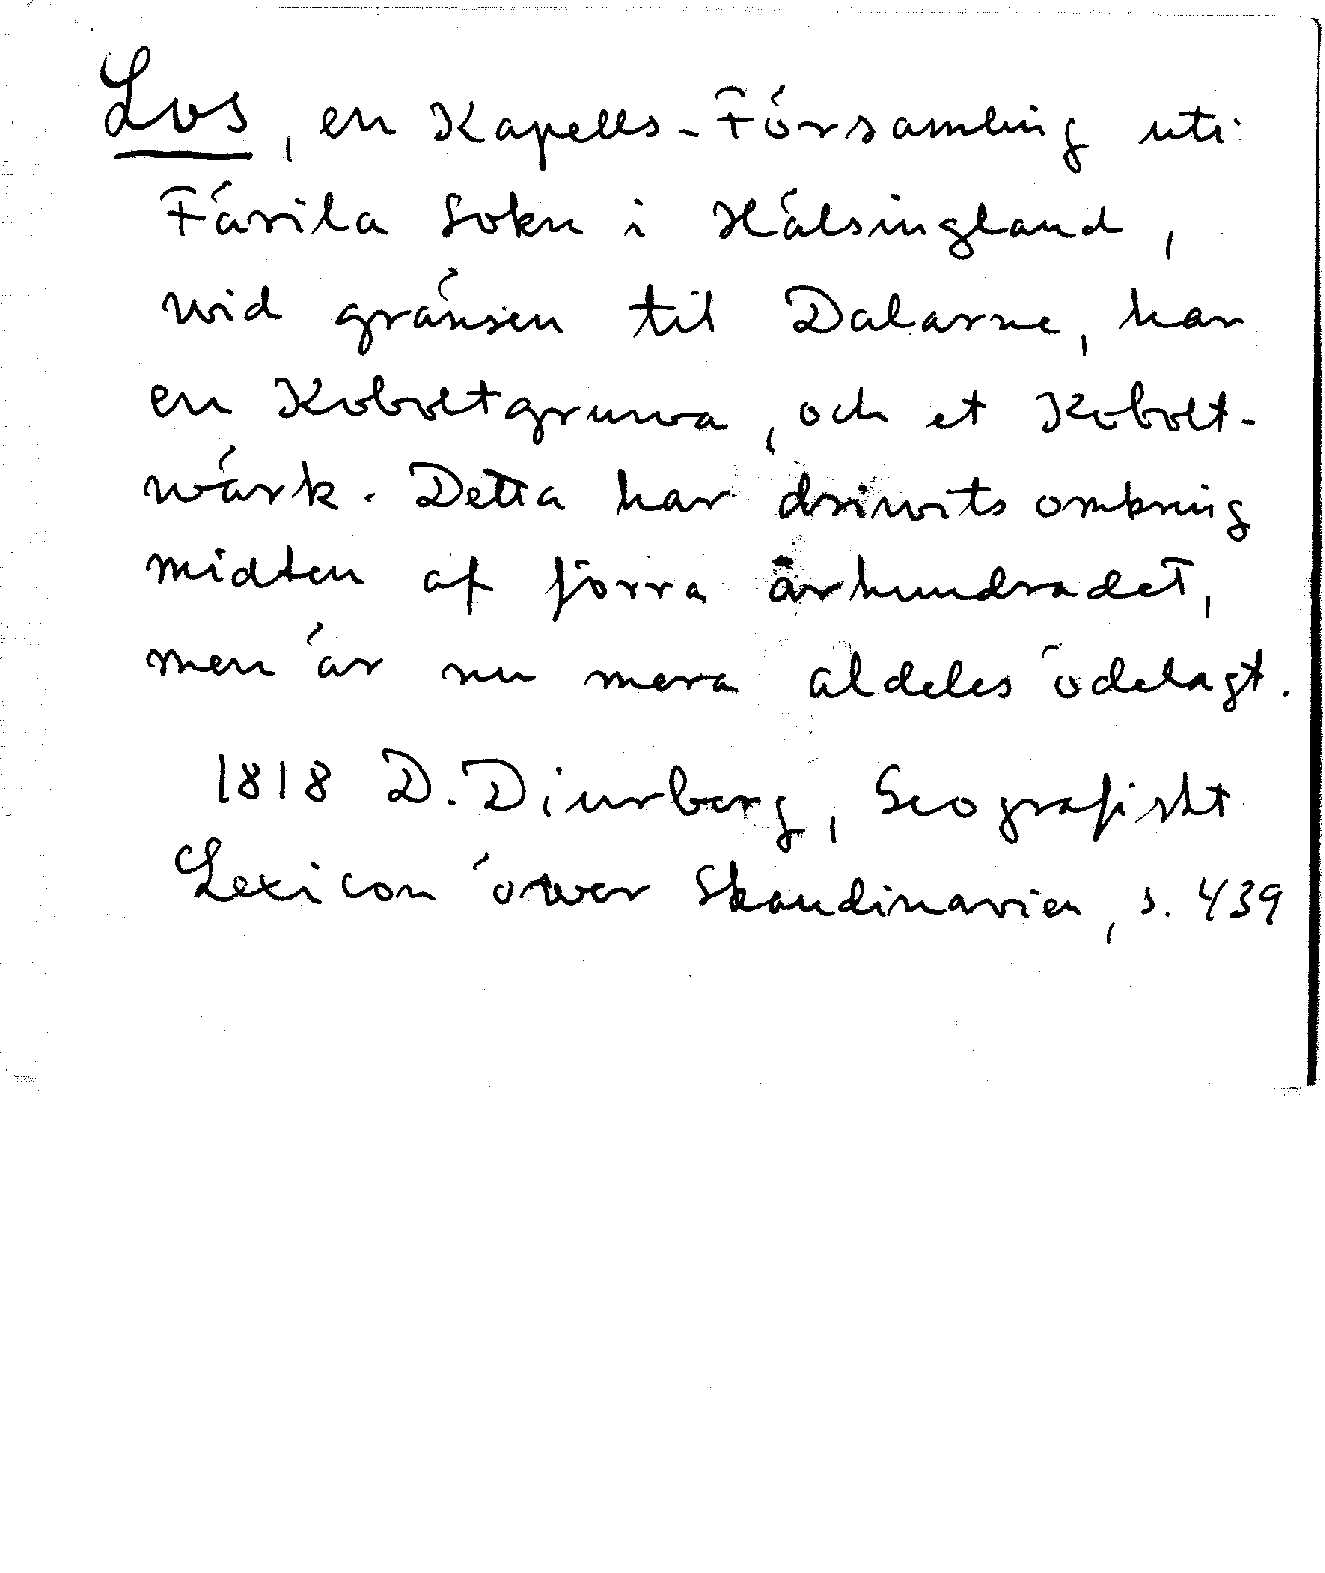 Los, en Kapells-Församling uti
Färila Sokn i Hälsingland,
wid gränsen til Dalarne, har
en Koboltgruwa, och et Kobolt-
wärk. Detta har driwits omkring
midten af förra århundradet,
men är nu mera aldeles ödelagt.
1818 D. Diurberg, Geografiskt
Lexicon öwer Skandinavien, s. 439